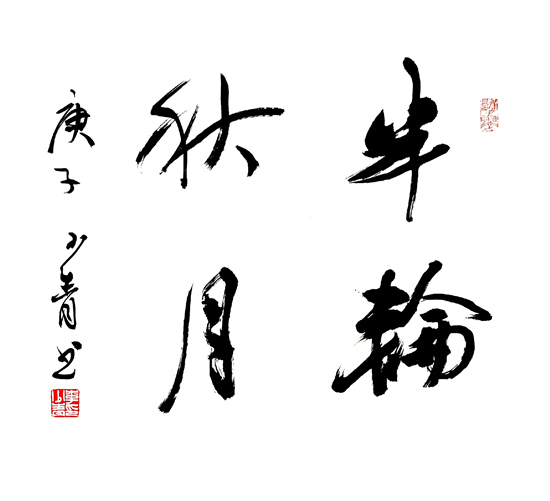 半輪
秋月
庚子 少青书